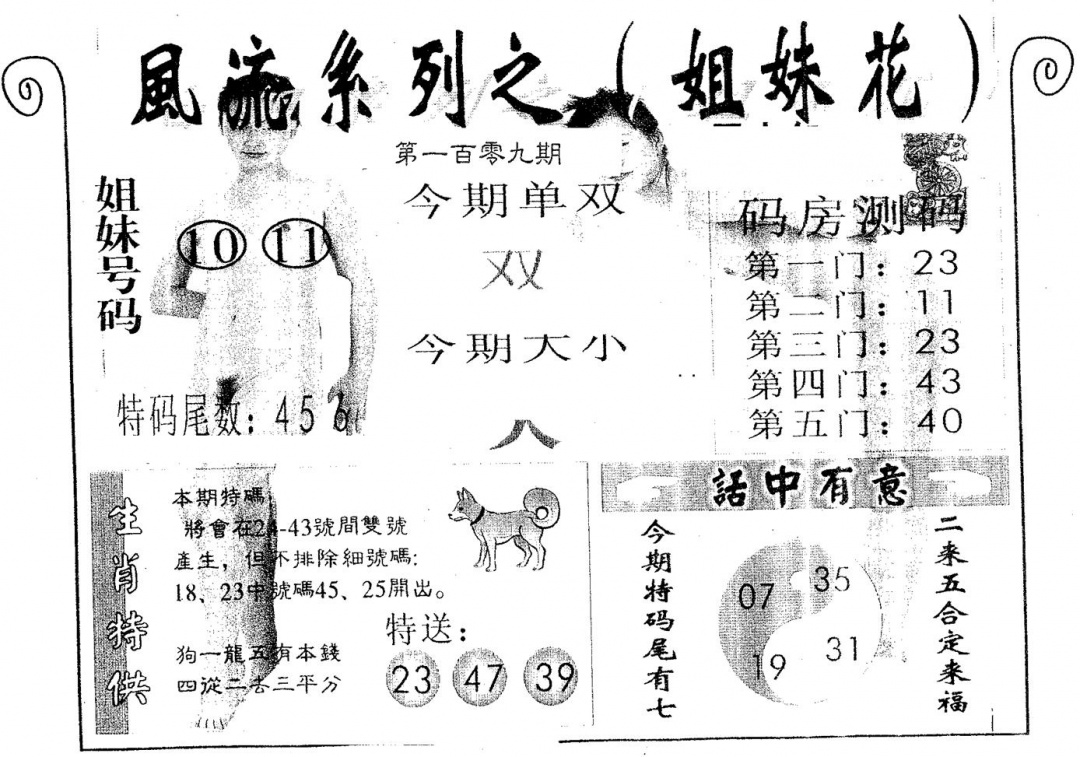 風流系列之（姐妹花）
第一百零九期
今期单双
双
今期大小
大
姐妹号码
10 11
特码尾数：456
码房测码
第一门：23
第二门：11
第三门：23
第四门：43
第五门：40
生肖特供
本期特碼：
將會在24-43號間雙號
產生，但不排除細號碼:
18、23中號碼45、25開出。
狗一龍五有本錢
四從二去三平分
特送：
23 47 39
話中有意
今期特码尾有七
07 35
19 31
二来五合定来福